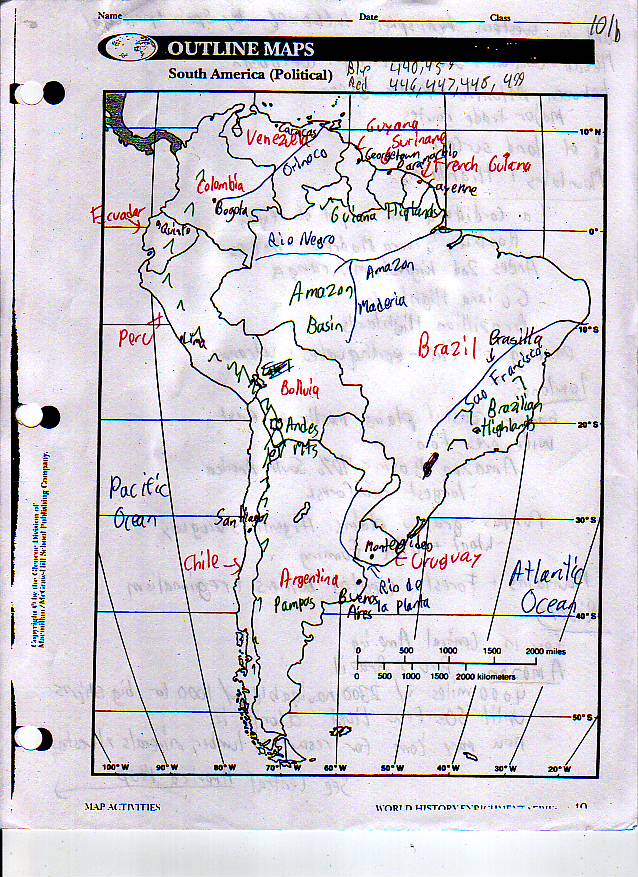 Name Date Class
10/6
OUTLINE MAPS
South America (Political)
440, 45
Red 446, 447, 448, 499
Caracas
Venezuela
Guyana
Surinam
Orinoco
Georgetown
Paramaribo
French Guiana
Cayenne
10°N
Colombia
Bogota
Guiana Highlands
Ecuador
Quinto
0°
Rio Negro
Amazon
Amazon
Basin
Maderia
Peru
Lima
Brazil
Brasilia
10°S
Sao Francisco
Bolivia
Brazilian
Highlands
20°S
Andes
MTS
Pacific
Ocean
Santiago
30°S
Montevideo
Uruguay
Chile
Argentina
Pampas
Buenos
Aires
Rio de
la planta
Atlantic
Ocean
40°S
0 500 1000 1500 2000 miles
0 500 1000 1500 2000 kilometers
50°S
100°W 90°W 80°W 70°W 60°W 50°W 40°W 30°W 20°W
Copyright © by the Glencoe Division of
Macmillan/McGraw-Hill School Publishing Company.
MAP ACTIVITIES
WORLD HISTORY
10